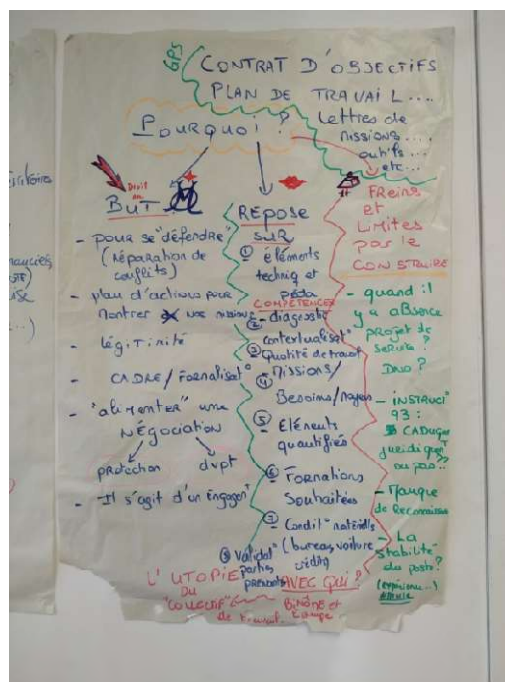 GPS
CONTRAT D'OBJECTIFS
PLAN DE TRAVAIL....
lettres de
missions....
outils...
etc...
POURQUOI?
Droit au
BUT
- pour se "défendre"
(réparation de
conflits)
- plan d'actions pour
montrer nos missions
- légitimité
- CADRE / formalisat°
- "alimenter" une
NÉGOCIATION
protection dvpt
- Il s'agit d'un engagem^t
REPOSE
SUR
① éléments
techniq et
péda
COMPÉTENCES
② - diagnostic
contextualisat°
③ Qualité de travail
④ Missions/
Besoins/moyens
⑤ Eléments
quantifiés
⑥ Formations
Souhaitées
⑦ Condit° matérielles
(bureau, voiture
crédits
⑧ Validat°
parties
prenantes
FREINS
et
LIMITES
pour le
CONSTRUIRE
- quand il
y a absence
projet de
service?
DNO?
- INSTRUCT°
93:
CADUQUE
juridiquem^t
ou pas..??
- Manque
de Reconnaiss
- La
stabilité
du poste?
L'UTOPIE
DU
"COLLECTIF"
de travail.
AVEC QUI?
BINÔME et